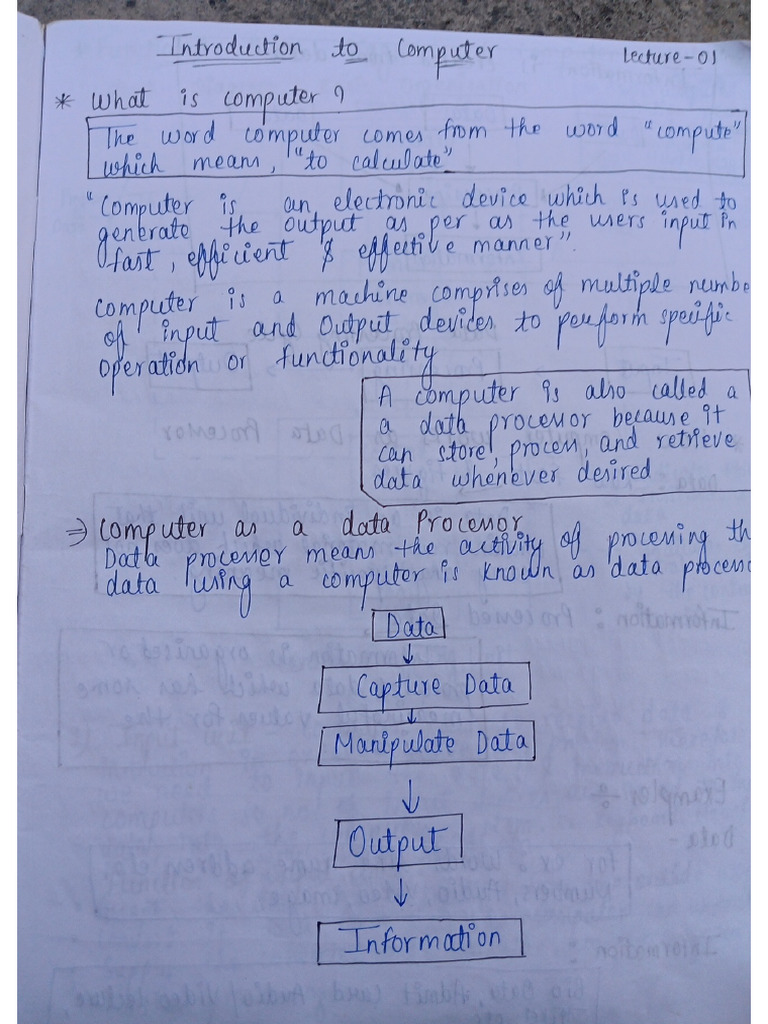 Introduction to Computer Lecture-01
* What is computer?
The word computer comes from the word "compute"
which means, "to calculate"
"Computer is an electronic device which is used to
generate the output as per as the users input in
fast, efficient & effective manner".
Computer is a machine comprises of multiple numbe
of input and Output devices to perform specific
operation or functionality
A computer is also called a
a data processor because it
can store, process, and retrieve
data whenever desired
⇒ Computer as a data Processor
Data processer means the activity of processing th
data using a computer is known as data process
Data
↓
Capture Data
↓
Manipulate Data
↓
Output
↓
Information